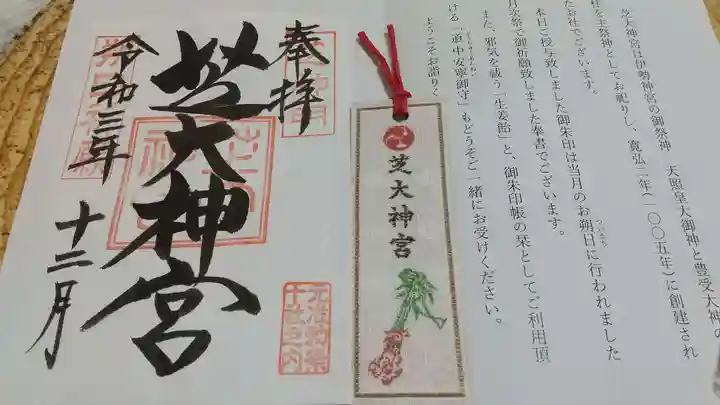 奉拝
芝大神宮
令和三年
十二月
元准勅祭
十社之内
芝大神宮
芝大神宮は伊勢神宮の御祭神 天照皇大御神と豊受大神の
柱を主祭神としてお祀りし、寛弘二年(一〇〇五年)に創建され
たお社でございます。
本日ご授与致しました御朱印は当月のお朔日に行われました
月次祭で御祈願致しました奉書でございます。
また、邪気を祓う「生姜飴」と、御朱印帳の栞としてご利用頂
ける「道中安寧御守」もどうぞご一緒にお受けください。
ようこそお詣りく